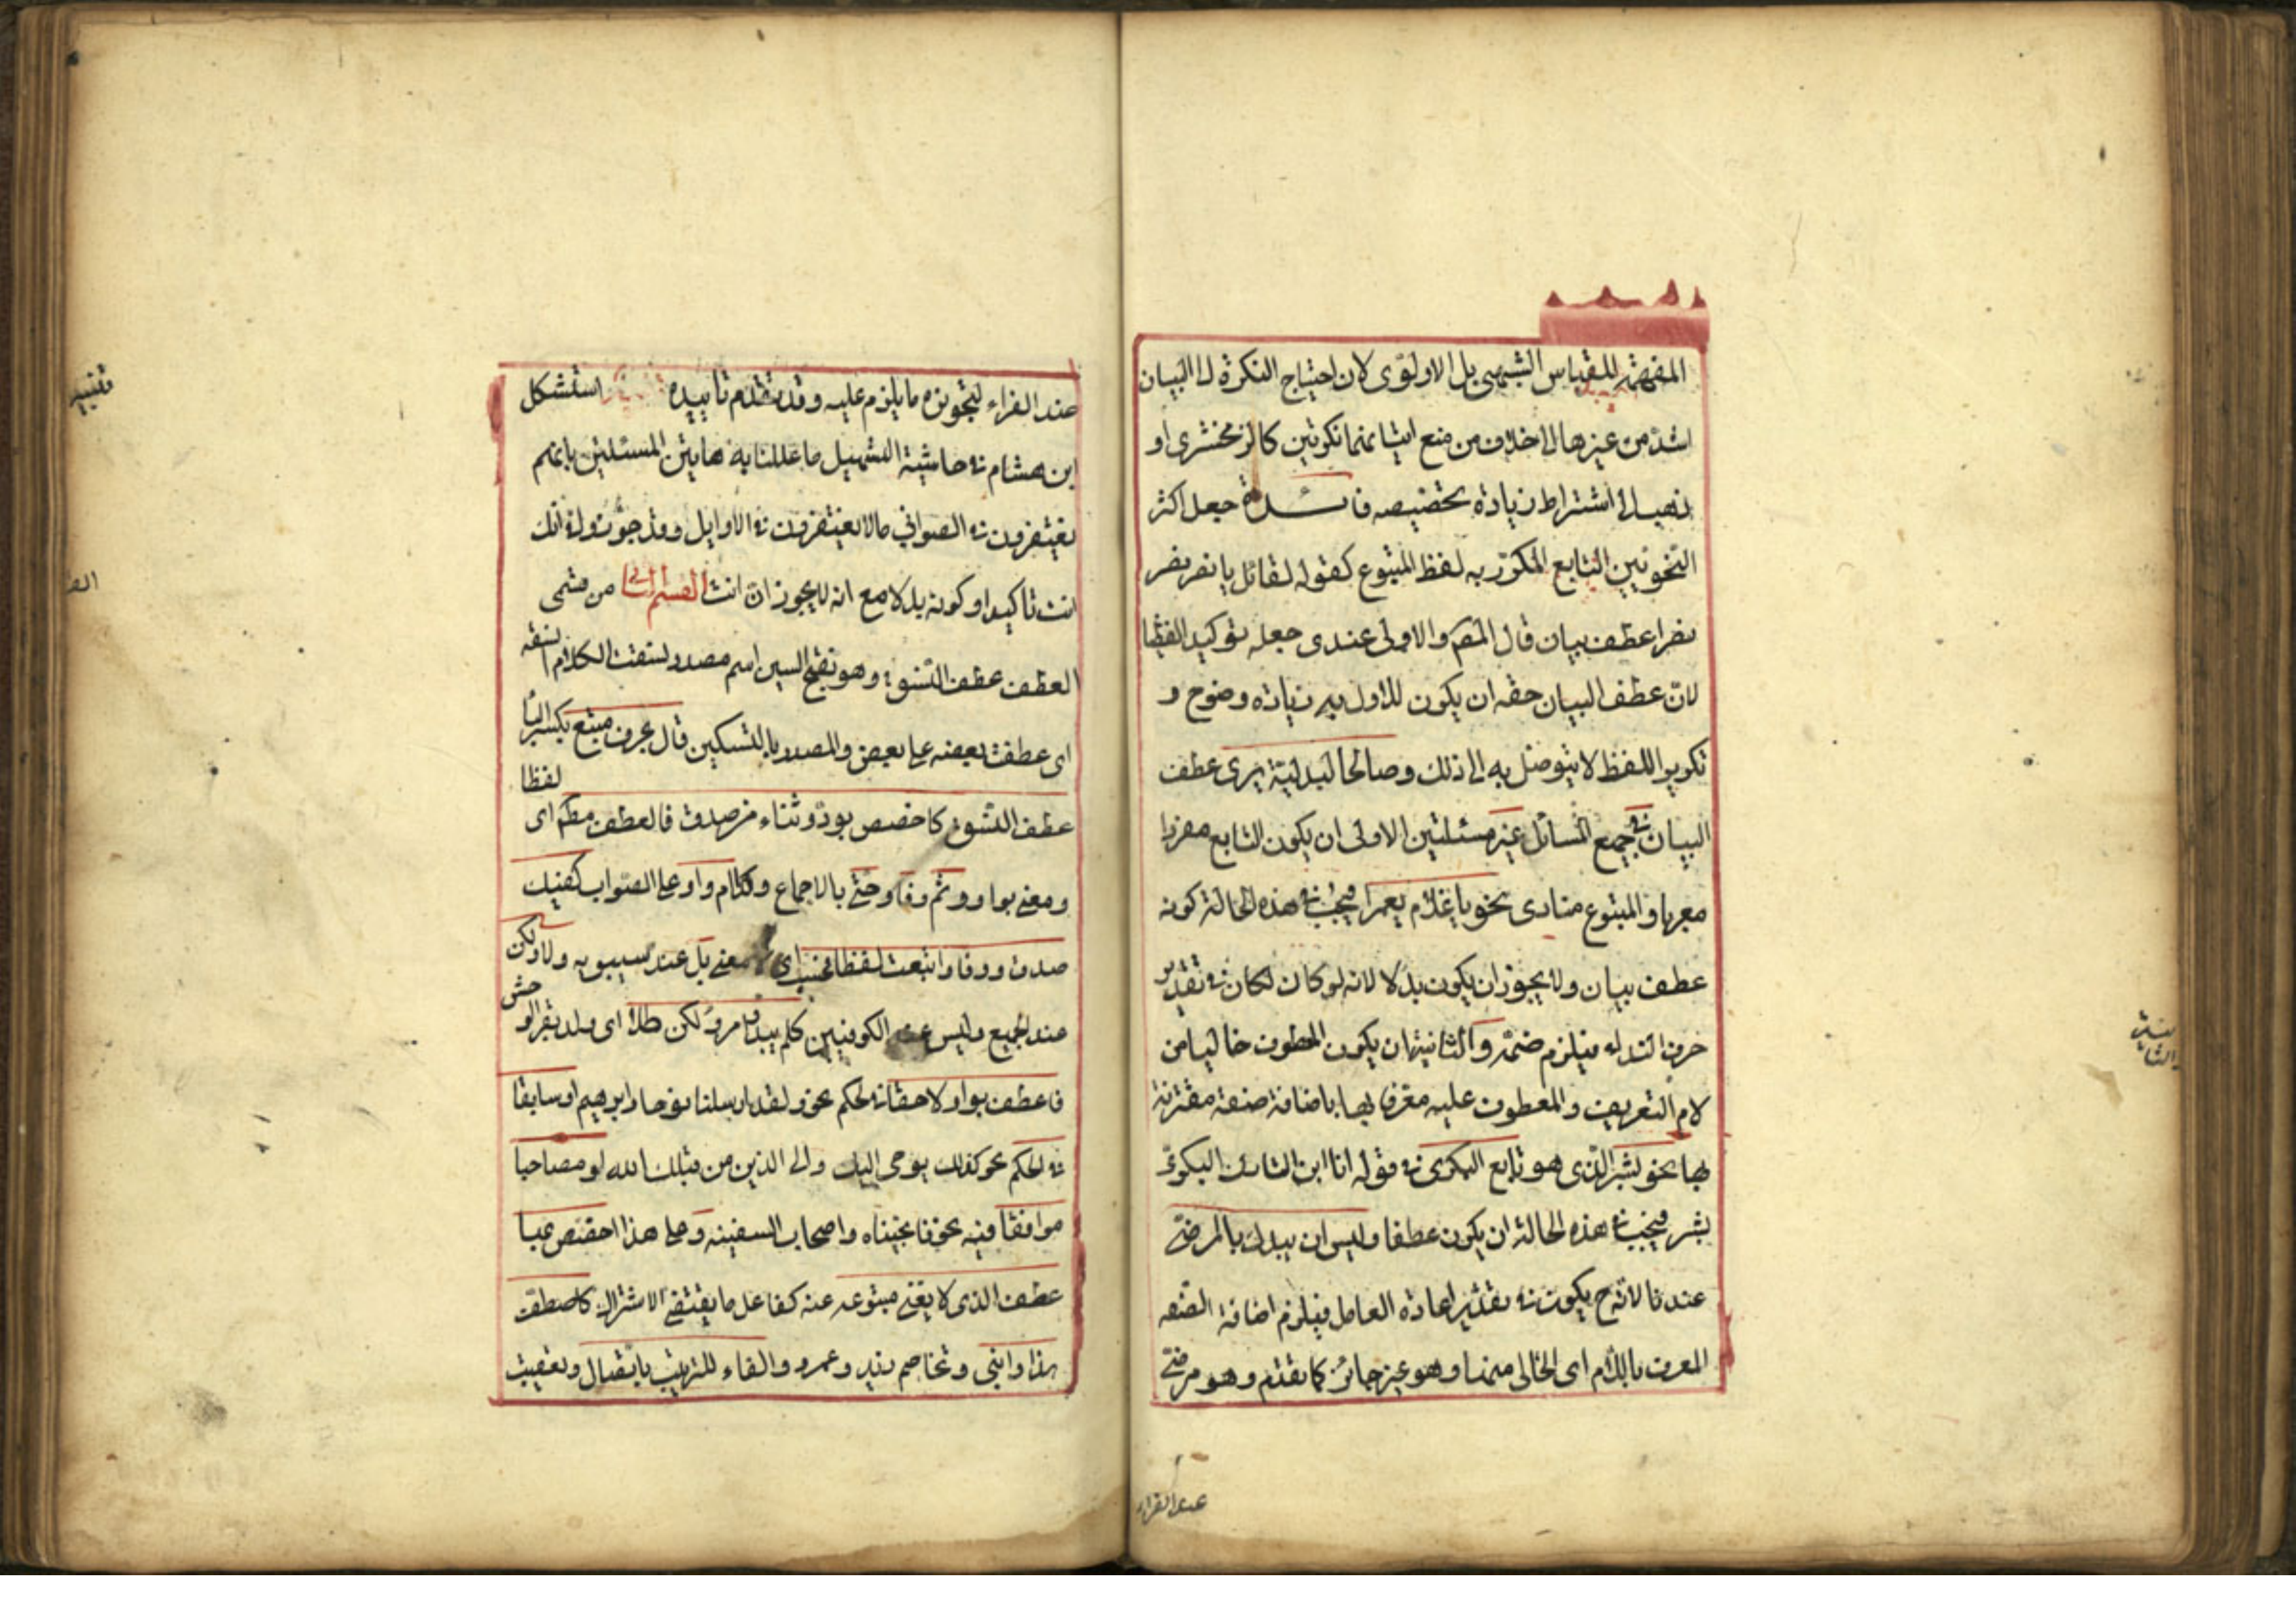 المفهم للقياس الشبهي بل الاولوي لان احتياج النكرة الى البيان
اشد من غيرها الا خلاف من منع اتيانهما نكرتين كالزمخشري او
ذهب الى اشتراط زيادة تخصيصه فائدة جعل اكثر
النحويين التابع المكرر به لفظ المتبوع كقوله لقائل يا نصر نصر
نصرا عطف بيان قال المصم والاولى عندى جعله توكيدا لفظيا
لان عطف البيان حقه ان يكون للاول به زيادة وضوح و
تكرير اللفظ لا يتوصل به الى ذلك وصالحا لبدلية يرى عطف
البيان فى جميع المسائل غير مسئلتين الاولى ان يكون التابع مفردا
معربا والمتبوع منادى نحو يا غلام يعمرا فيجب فى هذه الحالة كونه
عطف بيان ولا يجوز ان يكون بدلا لانه لو كان لكان فى تقدير
حرف النداء فيلزم ضمه والثانية ان يكون المعطوف خاليا من
لام التعريف والمعطوف عليه معرفا بها باضافة صفة مقترنة
بها نحو بشر الذى هو تابع البكرى فى قوله انا ابن التارك البكرى
بشر فيجب فى هذه الحالة ان يكون عطفا وليس ان يبدل بالمرضى
عندنا لانه ح يكون فى تقدير اعادة العامل فيلزم اضافة الصفه
المعرف باللام اى الخالى منها وهو غير جائز كما تقدم وهو مرضى
عند الفراء
عند الفراء لتجويزه ما يلزم عليه وقد تقدم تاييده استشكل
ابن هشام فى حاشية التسهيل ما عللنا به هاتين المسئلتين بانهم
يغتفرون فى الثوانى ما لا يغتفرون فى الاوايل وقد جوزوا فى انك
انت تاكيدا وكونه بدلا مع انه لا يجوز ان انت القسم الثانى من قسمى
العطف عطف النسق وهو بفتح السين اسم مصدر نسقت الكلام انسقه
اى عطفت بعضه على بعض والمصدر بالتسكين قال بحرف متبع بكسر البا
عطف النسق كاخصص بود وثناء من صدق فالعطف مطم اى لفظا
ومعنى بواو وثم وفا وحتى بالاجماع وكذا ام واو على الصواب كفيك
صدق ووفا واتبعت لفظا فحسب اى لا معنى بل عند سيبويه ولا ولكن
عند الجميع وليس عند الكوفيين كلم يبد امرؤ لكن طلا اى ولد بقر الوحش
فاعطف بواو لاحقا فى الحكم نحو ولقد ارسلنا نوحا وابرهيم او سابقا
فى الحكم نحو كذلك يوحى اليك والى الذين من قبلك الله او مصاحبا
موافقا فيه نحو فانجيناه واصحاب السفينه وعلى هذا اخصص بها
عطف الذى لا يغنى متبوعه عنه كفاعل ما يقتضى الاشتراك كاصطف
هذا وابنى وتخاصم زيد وعمرو والفاء للترتيب باتصال وتعقيب
تنبيه
الثانية